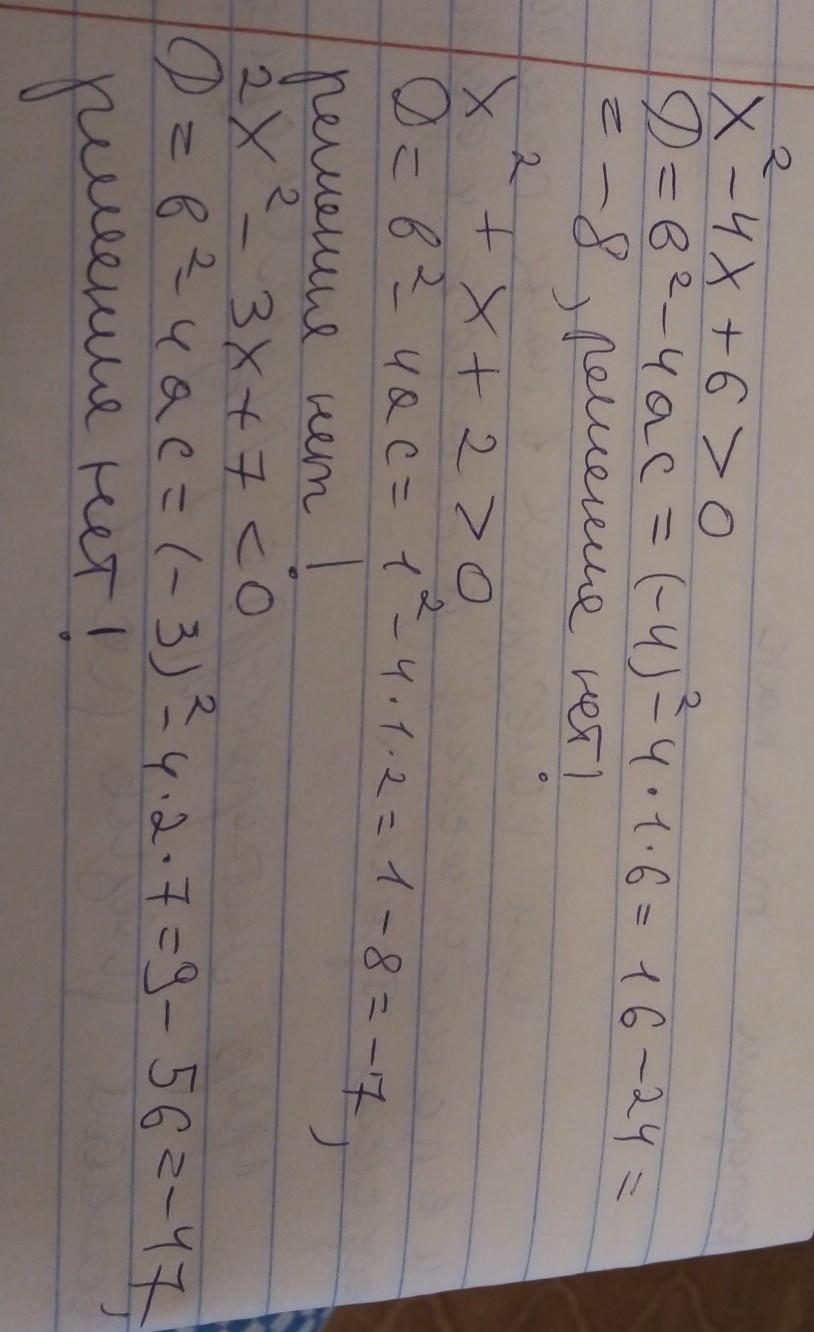 x² - 4x + 6 > 0
D = в² - 4ac = (-4)² - 4·1·6 = 16 - 24 =
= -8, решение нет!
x² + x + 2 > 0
D = в² - 4ac = 1² - 4·1·2 = 1 - 8 = -7,
решение нет!
2x² - 3x + 7 < 0
D = в² - 4ac = (-3)² - 4·2·7 = 9 - 56 = -47,
решение нет!